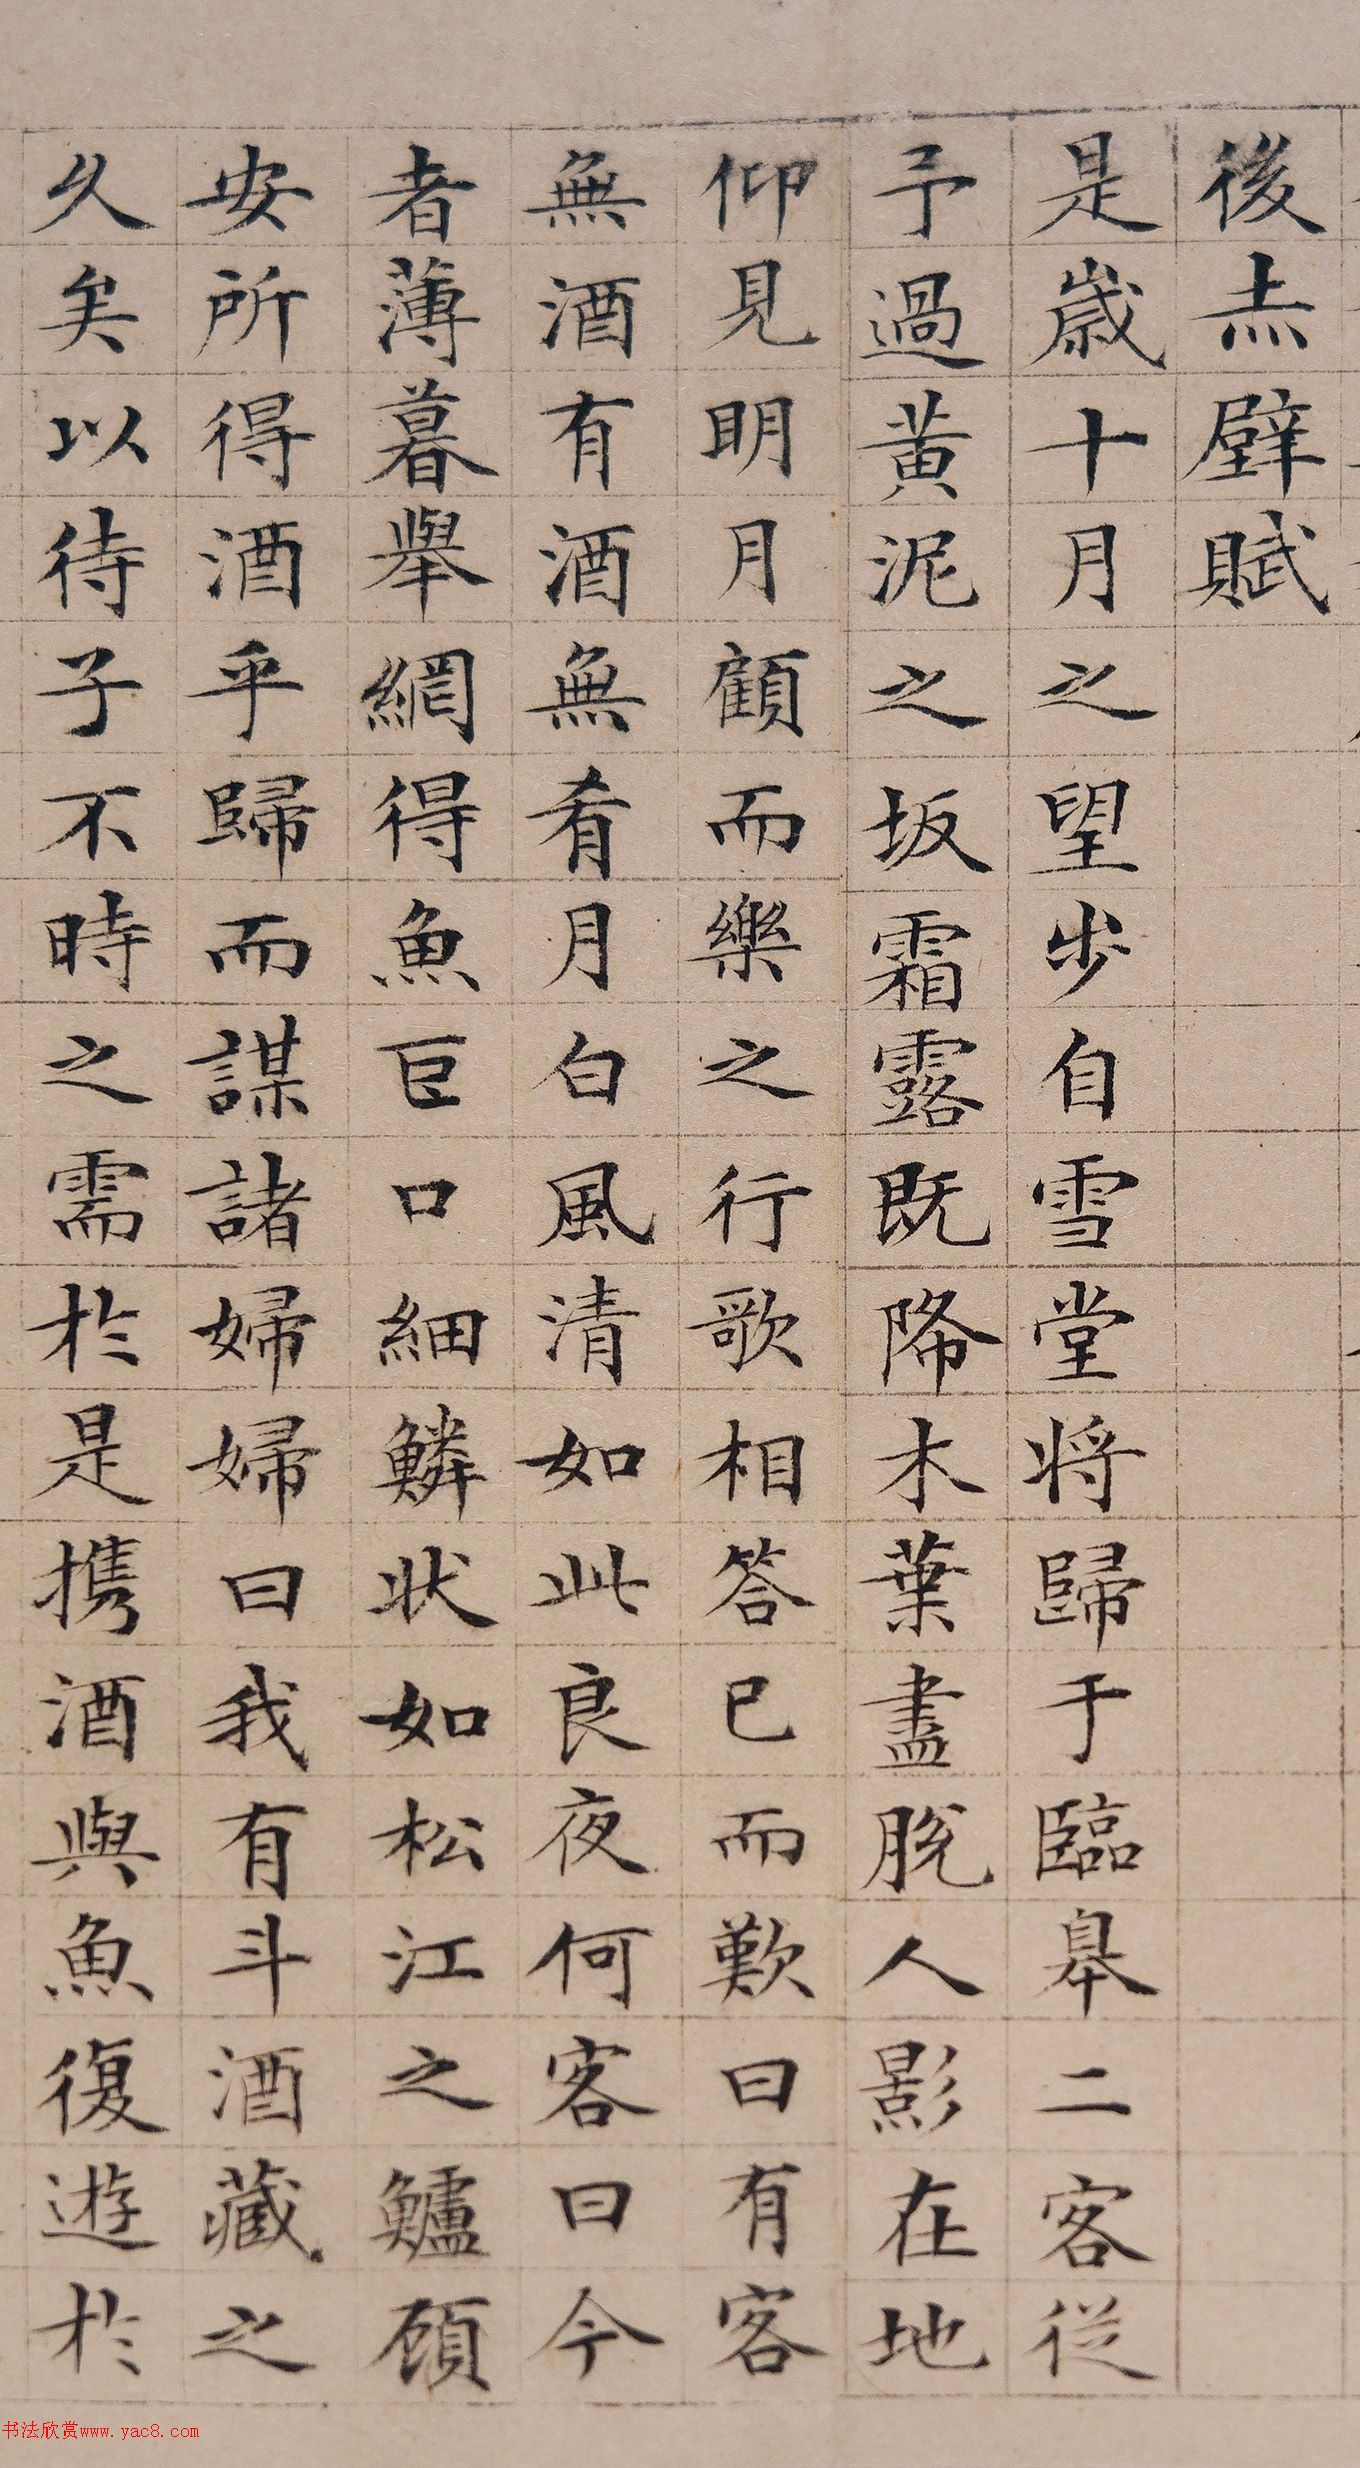 後赤壁賦
是歲十月之望步自雪堂將歸于臨皋二客從
予過黃泥之坂霜露既降木葉盡脫人影在地
仰見明月顧而樂之行歌相答已而歎曰有客
無酒有酒無肴月白風清如此良夜何客曰今
者薄暮舉網得魚巨口細鱗狀如松江之鱸顧
安所得酒乎歸而謀諸婦婦曰我有斗酒藏之
久矣以待子不時之需於是携酒與魚復遊於
书法欣赏www.yac8.com